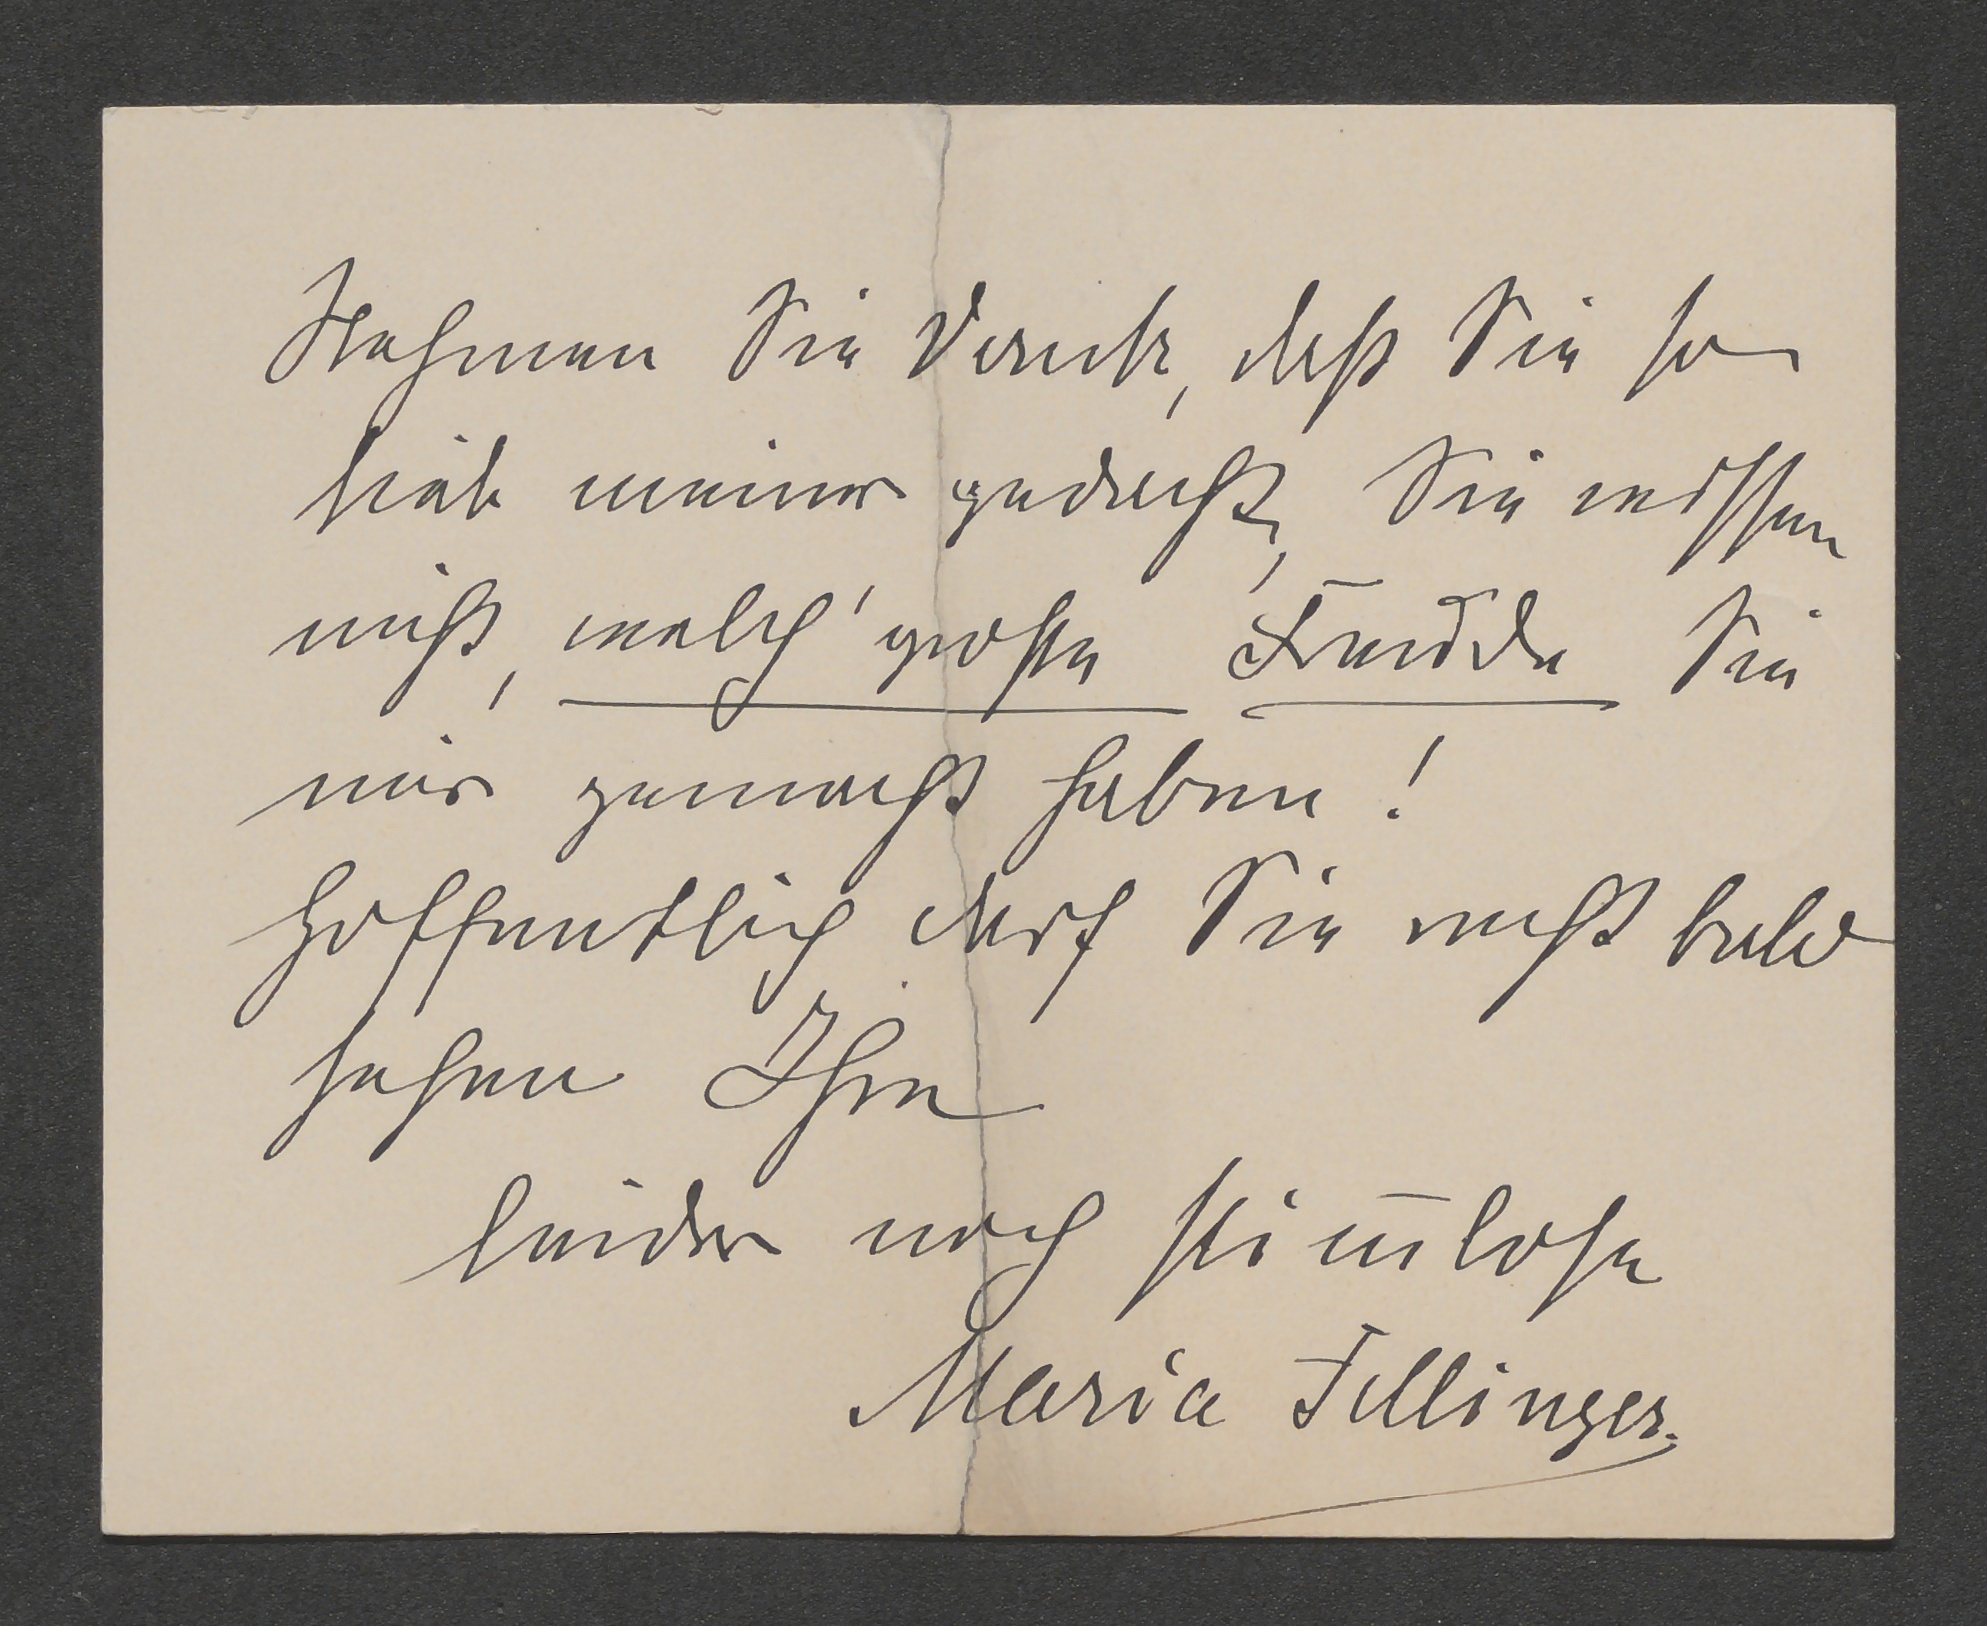 Nehmen Sie Dank, daß Sie so
lieb meiner gedacht, Sie wissen
nicht, welch' große Freude Sie
mir gemacht haben!
Hoffentlich darf Sie recht bald
sehen Ihre
leider noch stim̅lose
Maria Fellinger.